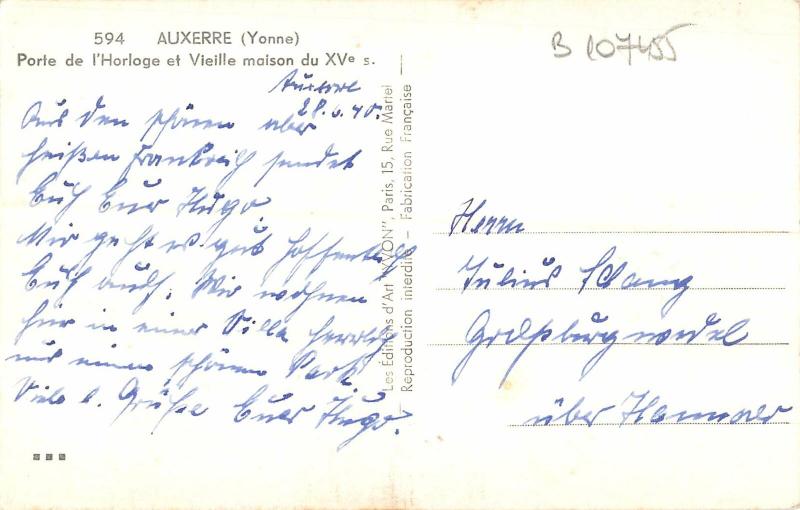 594 AUXERRE (Yonne)
Porte de l'Horloge et Vieille maison du XVe s.
B 107455
Auxerre
28.6.40.
Aus den schönen aber
heißen Frankreich sendet
Euch Euer Hugo.
Mir geht es gut hoffentlich
Euch auch. Wir wohnen
hier in einer Villa herrlich
mit einem schönen Park.
Viele l. Grüße Euer Hugo.
Les Editions d'Art "YVON", Paris, 15, Rue Martel
Reproduction interdite — Fabrication Française
Herrn
Julius
Großburgwedel
über Hannover